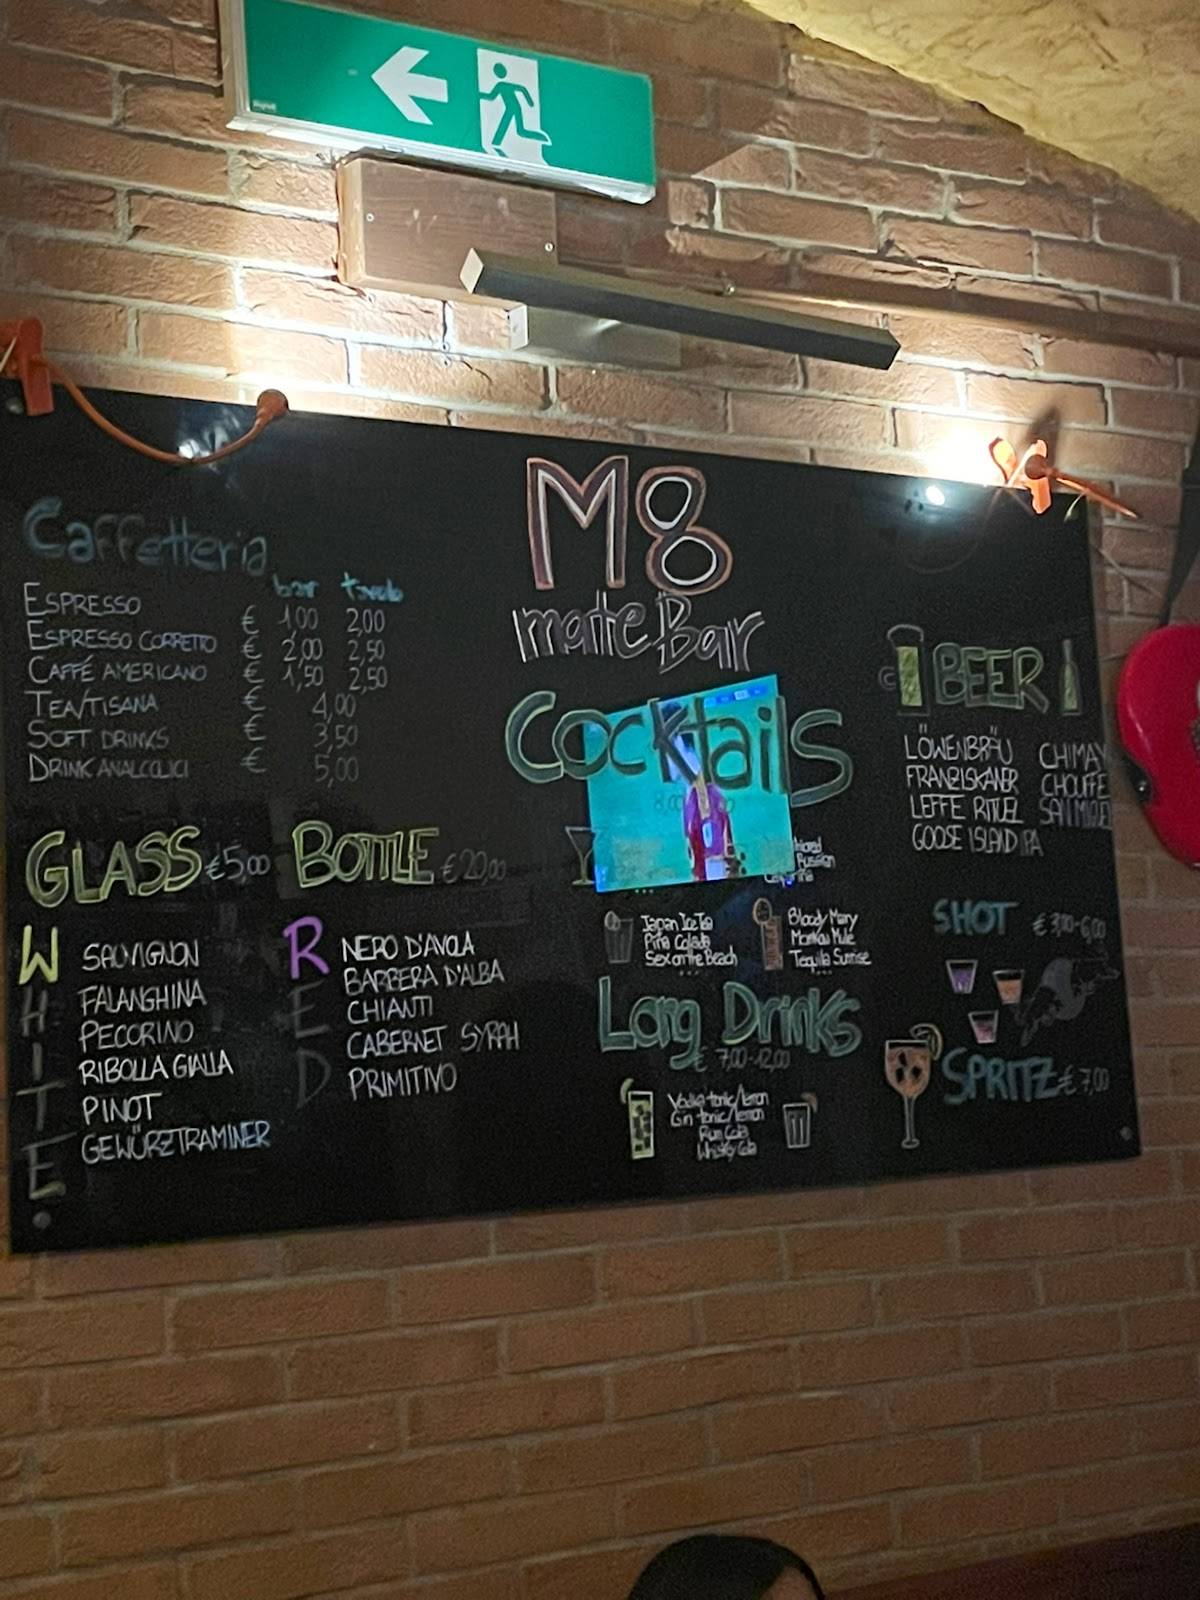 M8
matte Bar
Caffetteria
bar tavolo
ESPRESSO € 1,00 2,00
ESPRESSO CORRETTO € 2,00 2,50
CAFFÉ AMERICANO € 1,50 2,50
TEA/TISANA € 4,00
SOFT DRINKS € 3,50
DRINK ANALCOLICI € 5,00
GLASS € 5,00
BOTTLE € 20,00
WHITE
SAUVIGNON
FALANGHINA
PECORINO
RIBOLLA GIALLA
PINOT
GEWÜRZTRAMINER
RED
NERO D'AVOLA
BARBERA D'ALBA
CHIANTI
CABERNET SYRAH
PRIMITIVO
Cocktails
Russian
Japan Ice Tea
Piña Colada
Sex on the Beach
Bloody Mary
Moskow Mule
Tequila Sunrise
Long Drinks
€ 7,00-12,00
Vodka tonic/lemon
Gin tonic/lemon
Rum Cola
Whisky Cola
BEER
LÖWENBRÄU
FRANZISKANER
LEFFE RITUEL
GOOSE ISLAND IPA
CHIMAY
CHOUFFE
SAN MIGUEL
SHOT € 3,00-6,00
SPRITZ € 7,00